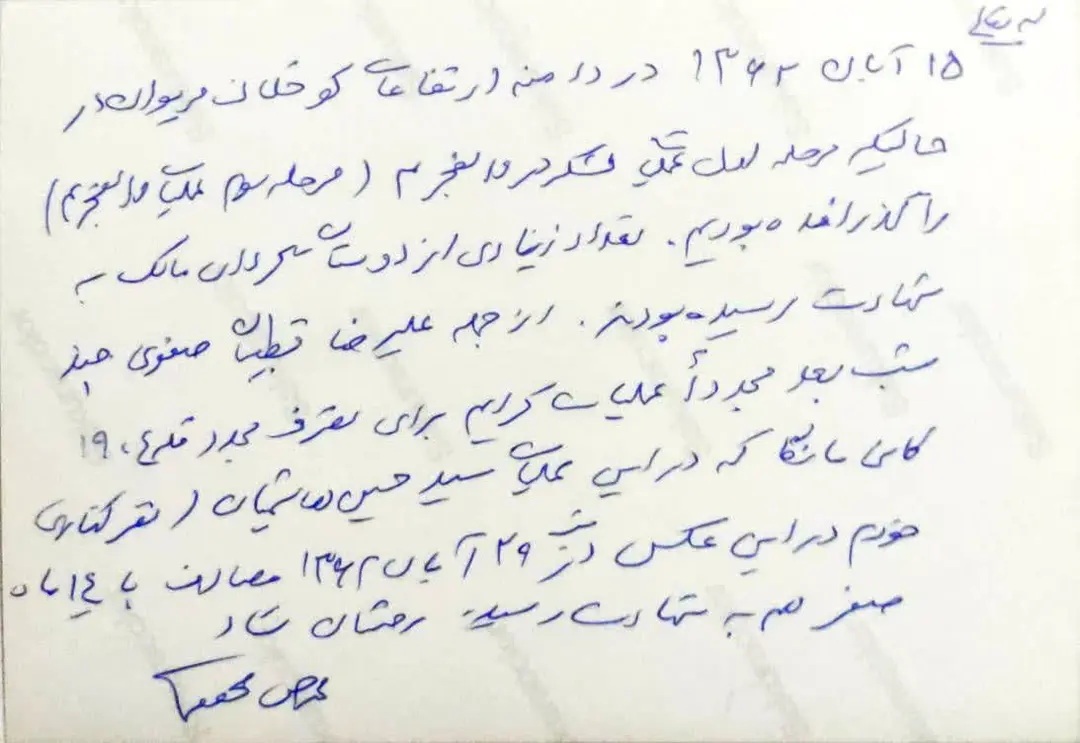 ۱۵ آبان ۱۳۶۲ در دامنه ارتفاعات کوخلان مریوان در
حالیکه مرحله اول عملیات لشکر در والفجر ۴ (مرحله سوم عملیات والفجر ۴)
را گذرانده بودیم. تعداد زیادی از دوستان گردان مالک به
شهادت رسیده بودند. از جمله علیرضا قطبیان صفوی چند
شب بعد مجدداً عملیات کردیم برای تصرف مجدد قله ۱۹۰۴
کانی مانگا که در این عملیات سید حسین هاشمیان (نفر کناری
خودم در این عکس در شب ۲۹ آبان ۱۳۶۲ مصادف با ۱۴ ماه
صفر هم به شهادت رسید. روحشان شاد